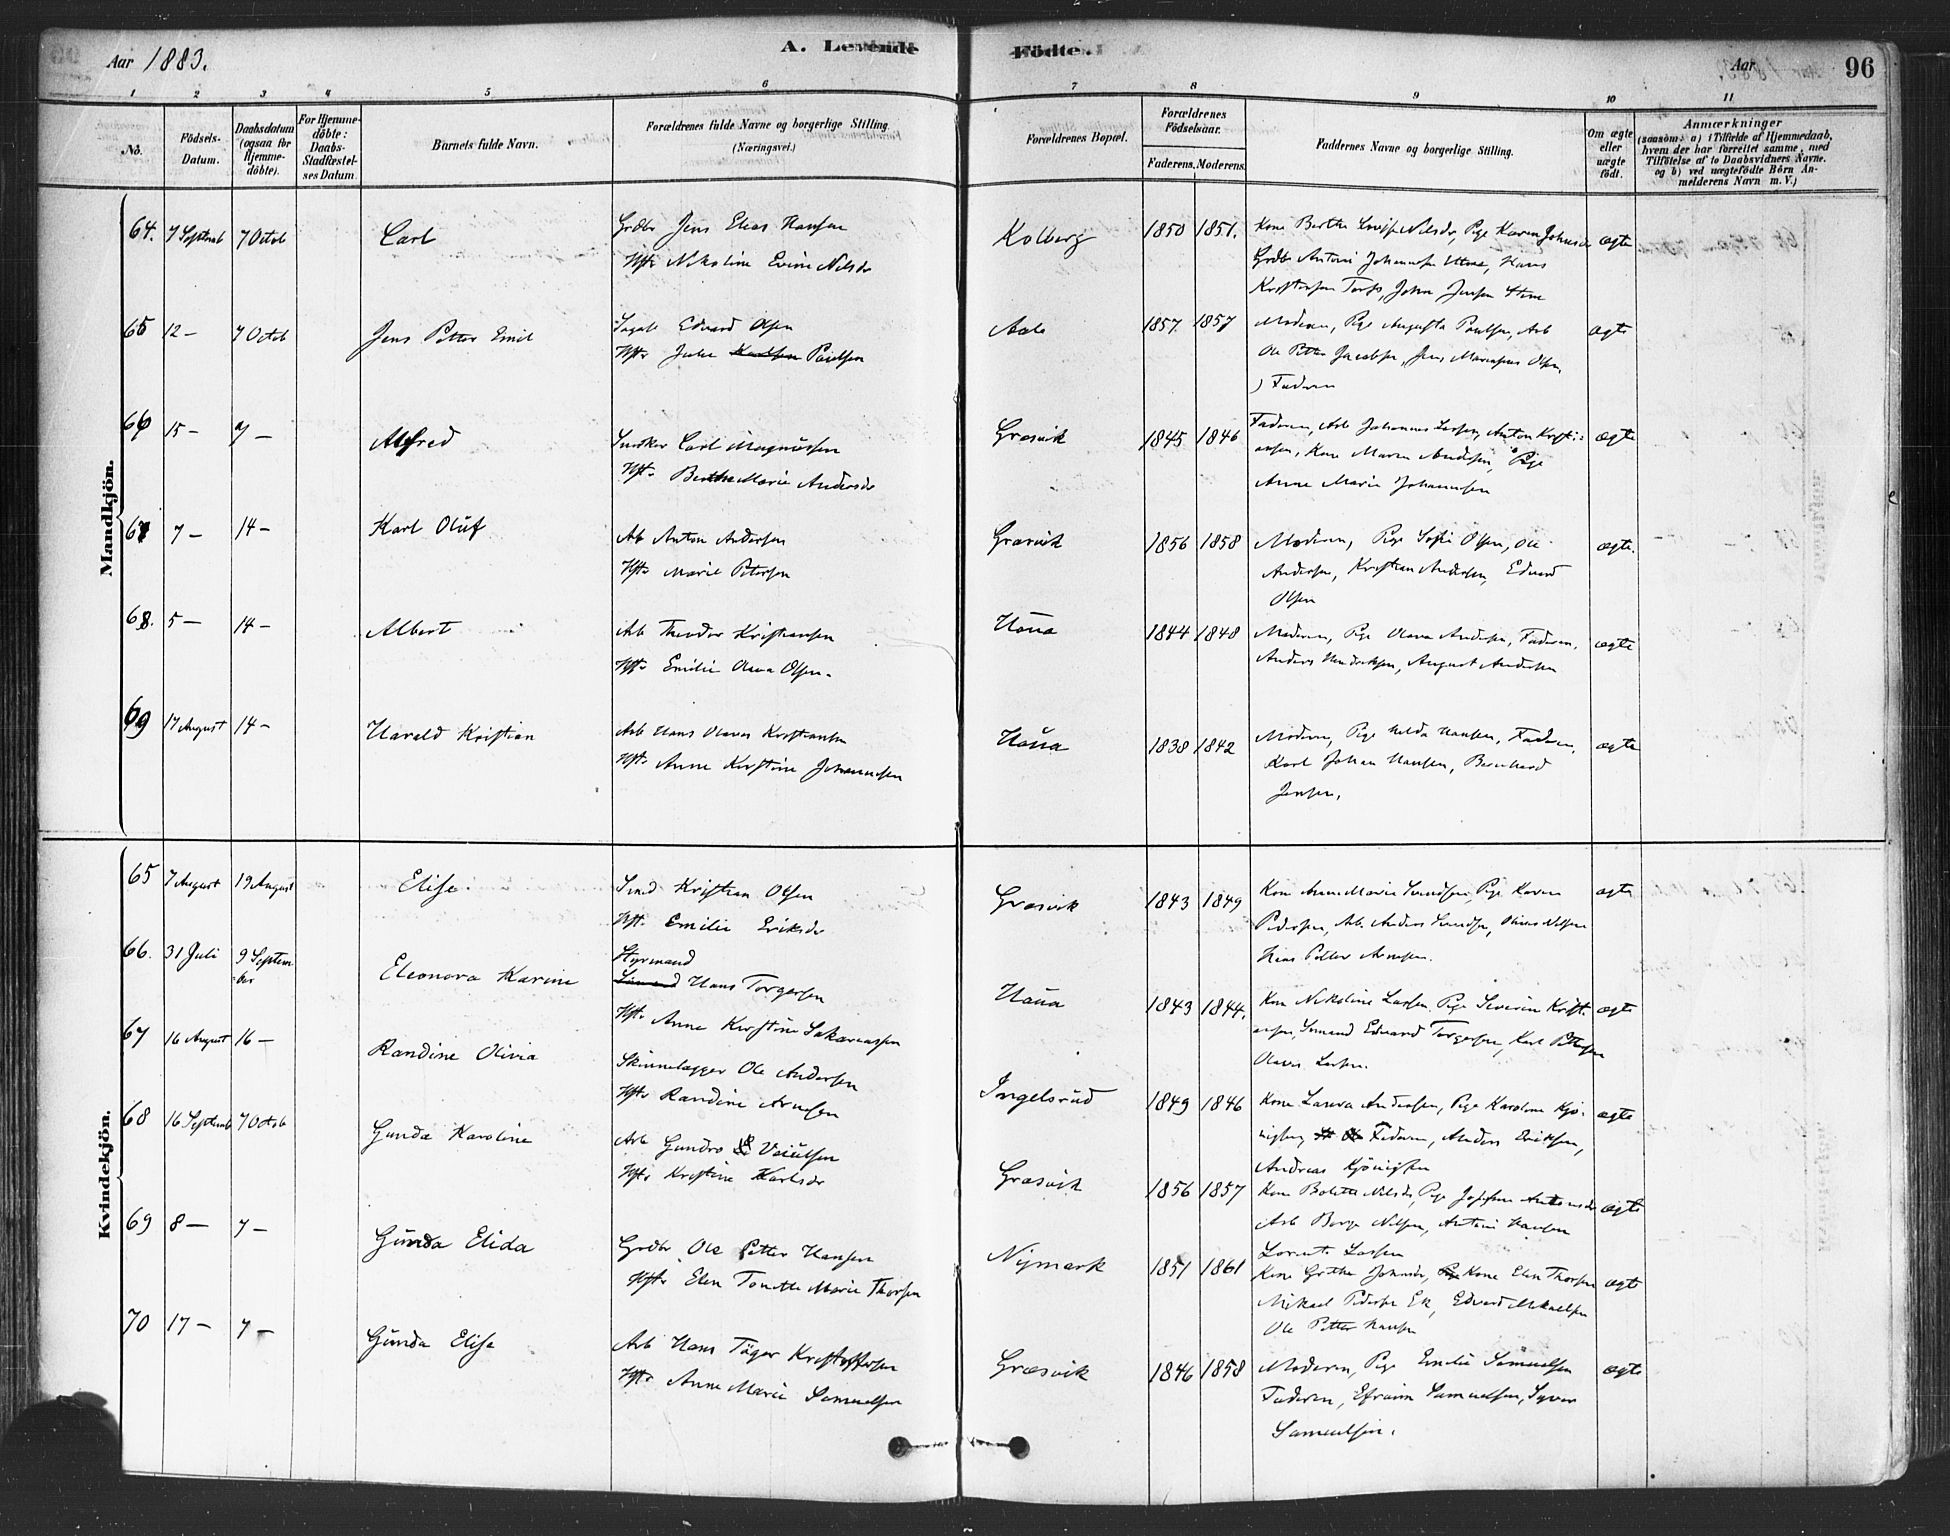 Aar 1883.
A. Levende
Födte.
Aar
96
1 2 3 4 5 6 7 8 9 10 11
No.
Födsels-
Datum.
Daabsdatum
(ogsaa for
Hjemme-
döbte).
For Hjemme-
döbte:
Daabs-
Stadfæstel-
ses Datum.
Barnets fulde Navn.
Forældrenes fulde Navne og borgerlige Stilling
(Næringsvei.)
Forældrenes Bopæl.
Forældrenes
Födselsaar.
Faderens. Moderens.
Faddernes Navne og borgerlige Stilling.
Om ægte
eller
uægte
födt.
Anmærkninger
(saasom: a) i Tilfælde af Hjemmedaab,
hvem der har forrettet samme, med
Tilföielse af to Daabsvidners Navne.
og b) ved uægtefödte Börn An-
melderens Navn m. V.)
Mandkjön.
64. 7 Septemb 7 Octob Carl
Grdbr Jens Elias Hansen
Hst. Nikoline Evine Nilsdr
Kolberg 1850 1851.
Kone Berthe Nilsdr, Pige Karen Johnsd
Grdbr Antoni Johannesen, Hans
Kristensen Torp, John Jensen
ægte
65 12 — 7 Octob Jens Petter Emil
Edvard Olsen
Hst. Julie Karlsen Paulsen
Aale 1857. 1857
Moderen, Pige Augusta Paulsen, Arb
Ole Petter Jacobsen, Jens Olsen,
Faderen
ægte
66 15 — 7 — Alfred
Snedker Carl Magnussen
Hst. Berthe Marie Andersdr
Græsvik 1845 1846
Faderen, Arb Johannes Larsen, Anton Kristi-
ansen, Kone Maren Andersen, Pige
Anne Marie Johannesen
ægte
67 7 — 14 — Karl Oluf
Arb Anton Andersen
Hst. Marie Petersen
Græsvik 1856 1858
Moderen, Pige Sofie Olsen, Ole
Andersen, Kristian Andersen, Edvard
Olsen
ægte.
68. 5 — 14 — Albert
Arb Theodor Kristiansen
Hst. Emilie Olava Olsen.
Haua 1844 1848
Moderen, Pige Olava Andersen, Faderen,
Anders Hendriksen, August Andersen
ægte
69 17 August 14 — Harald Kristian
Arb Hans Olaves Kristiansen
Hst. Anne Kirstine Johannesen
Haua 1838 1842
Moderen, Pige Hulda Hansen, Faderen,
Karl Johan Hansen, Bernhard
Jensen.
ægte
Kvindekjön.
65 7 August 19 August Elise.
Smd Kristian Olsen
Hst. Emilie Eriksdr
Græsvik 1843 1849
Kone Anne Marie, Pige Karen
Pedersen, Arb. Anders, Nilsen
Petter Arnesen.
ægte
66. 31 Juli 9 Septem
-ber
Eleonora Karine
Styrmand
Hans Torgersen
Hst. Anne Kirstine Sakariassen
Haua 1843 1844.
Kone Nikoline Larsen, Pige Severine Kristi-
ansen, Sømand Edvard Torgersen, Karl Pettersen
Olaves Larsen.
ægte
67 16 August 16 — Randine Olivia
Skinnelægger Ole Andersen
Hst. Randine Arnesen
Ingelsrud 1849 1846
Kone Andersen, Pige Karoline Kjö-
nigsen Faderen, Anders Eriksen,
Andreas Kjönigsen
ægte
68 16 Septemb 7 Octob Gunda Karoline
Arb Gundro
Hst. Kristine Karlsdr
Græsvik 1856 1857
Kone Bolette Nilsdr, Pige Josefine Antonsdr
Arb Borge Nilsen, Antoni Hansen
Larsen
ægte
69 8 — 7 — Gunda Elida
Grdbr Ole Petter Hansen
Hst. Elen Tonette Marie Thorsen
Nymark 1851 1861
Kone Grethe Johnsdr, Kone Elen Thorsen
Mikael Pedersen Ek, Edvard Mikaelsen
Ole Petter Hansen
ægte
70 17 — 7 — Gunda Elise
Arb Hans Kristoffersen
Hst. Anne Marie Samuelsen
Græsvik 1846 1858
Moderen, Pige Emilie Samuelsen
Faderen, Efraim Samuelsen, Syver
Samuelsen.
ægte